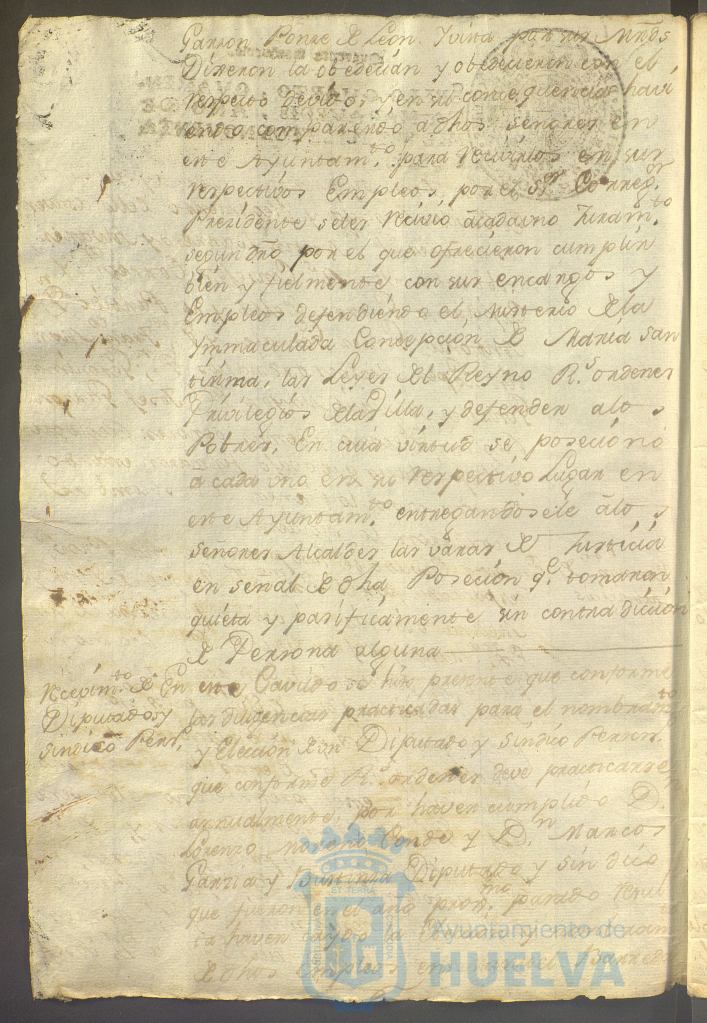 Garzon Ponze de León. Y vista por sus Mrds
Dixeron la obedecian y obedecieron con el
respecto devido, y en su consequencia havi
endo comparendo a dhos señores en
este Ayuntam.to para recivirlos en sus
respectivos Empleos, por el S.r Correg.or
Presidente se les recivio a cada uno Juram.to
segun dro por el que ofrecieron cumplir
bien y fielmente con sus encargos y
Empleos defendiendo el Misterio de la
Ynmaculada Concepción de Maria San
tisima, las Leyes del Reyno R.s ordenes
Privilegios de la Villa, y defender a los
Pobres, En cuia virtud se posecionó
a cada uno en su respectivo Lugar en
este Ayuntam.to entregandosele a los
señores Alcaldes las varas de Justicia
en señal de dha Poseción q.e tomaron
quieta y pacificamente sin contradición
de Persona alguna
Recevim.to de
Diputado y
Sindico Pers.
En este Cavildo se hizo presente que conforme
las diligencias practicadas para el nombram.to
y Elección de un Diputado y Sindico Person.
que conforme R.s ordenes deve practicarse
annualmente, por haver cumplido D.
Lorenzo Moreno Conde y D.n Marcos
Garzia y Diputado y Sindico
que fueron en el año prox.mo pasado resul
ta haver caydo la
de dhos Empleos en
Ayuntamiento de
HUELVA